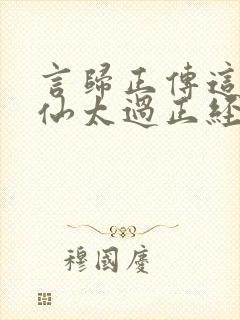 言歸正傳這
仙太過正經
穆國慶